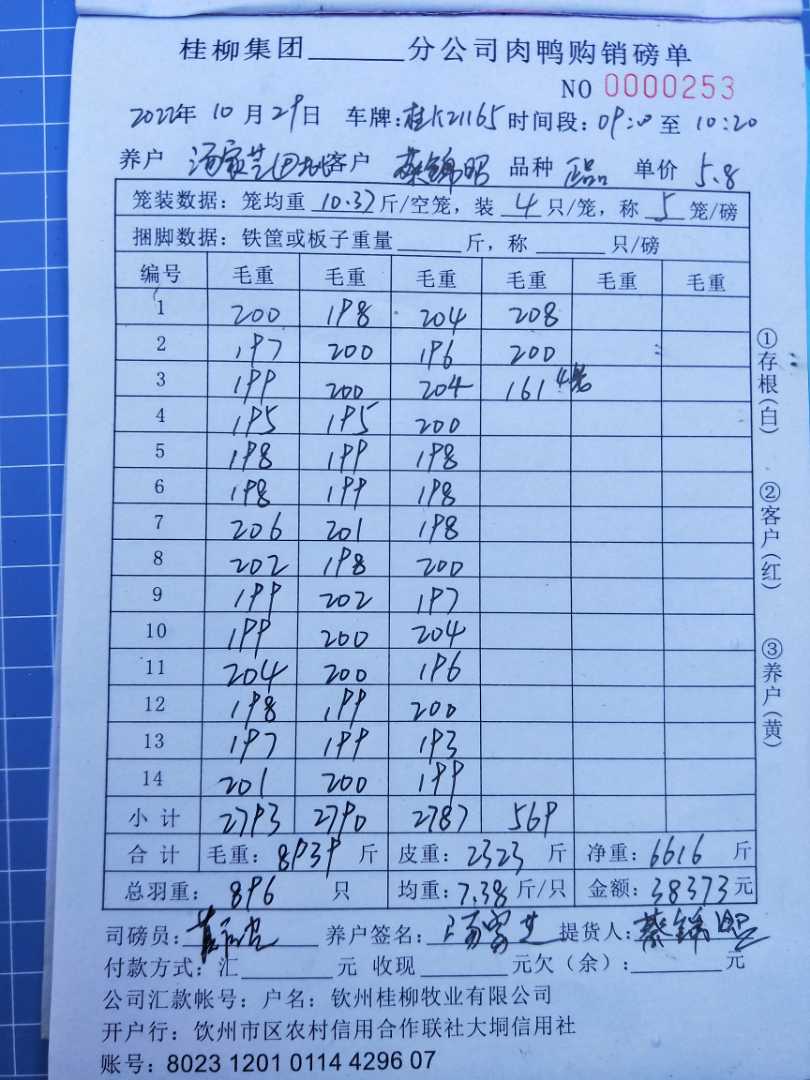 桂柳集团______分公司肉鸭购销磅单
NO 0000253
2022年 10月29日 车牌:桂K21165 时间段:09:20 至 10:20
养户 汤家芝 客户 蔡锦昭 品种 正品 单价 5.8
笼装数据:笼均重 10.37 斤/空笼,装 4 只/笼,称 5 笼/磅
捆脚数据:铁筐或板子重量______斤,称______只/磅
编号 毛重 毛重 毛重 毛重 毛重 毛重
1 200 198 204 208
2 197 200 196 200
3 199 200 204 161 4笼
4 195 195 200
5 198 199 198
6 198 199 198
7 206 201 198
8 202 198 200
9 199 202 197
10 199 200 204
11 204 200 196
12 198 199 200
13 197 199 193
14 201 200 199
小计 2793 2790 2787 569
合计 毛重:8939 斤 皮重:2323 斤 净重:6616 斤
总羽重:896 只 均重:7.38 斤/只 金额:38373 元
司磅员: 养户签名:汤家芝 提货人:蔡锦昭
付款方式:汇______元 收现______元欠(余):______元
公司汇款帐号:户名:钦州桂柳牧业有限公司
开户行:饮州市区农村信用合作联社大垌信用社
账号:8023 1201 0114 4296 07
①存根(白)
②客户(红)
③养户(黄)